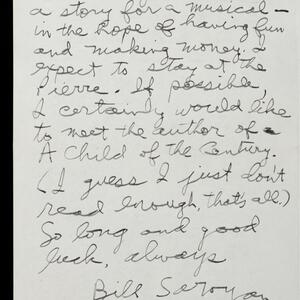 a story for a musical —
in the hope of having fun
and making money. I
expect to stay at the
Pierre. If possible,
I certainly would like
to meet the author of
A Child of the Century.
(I guess I just don't
read enough, that's all.)
So long and good
luck, always
Bill Saroyan